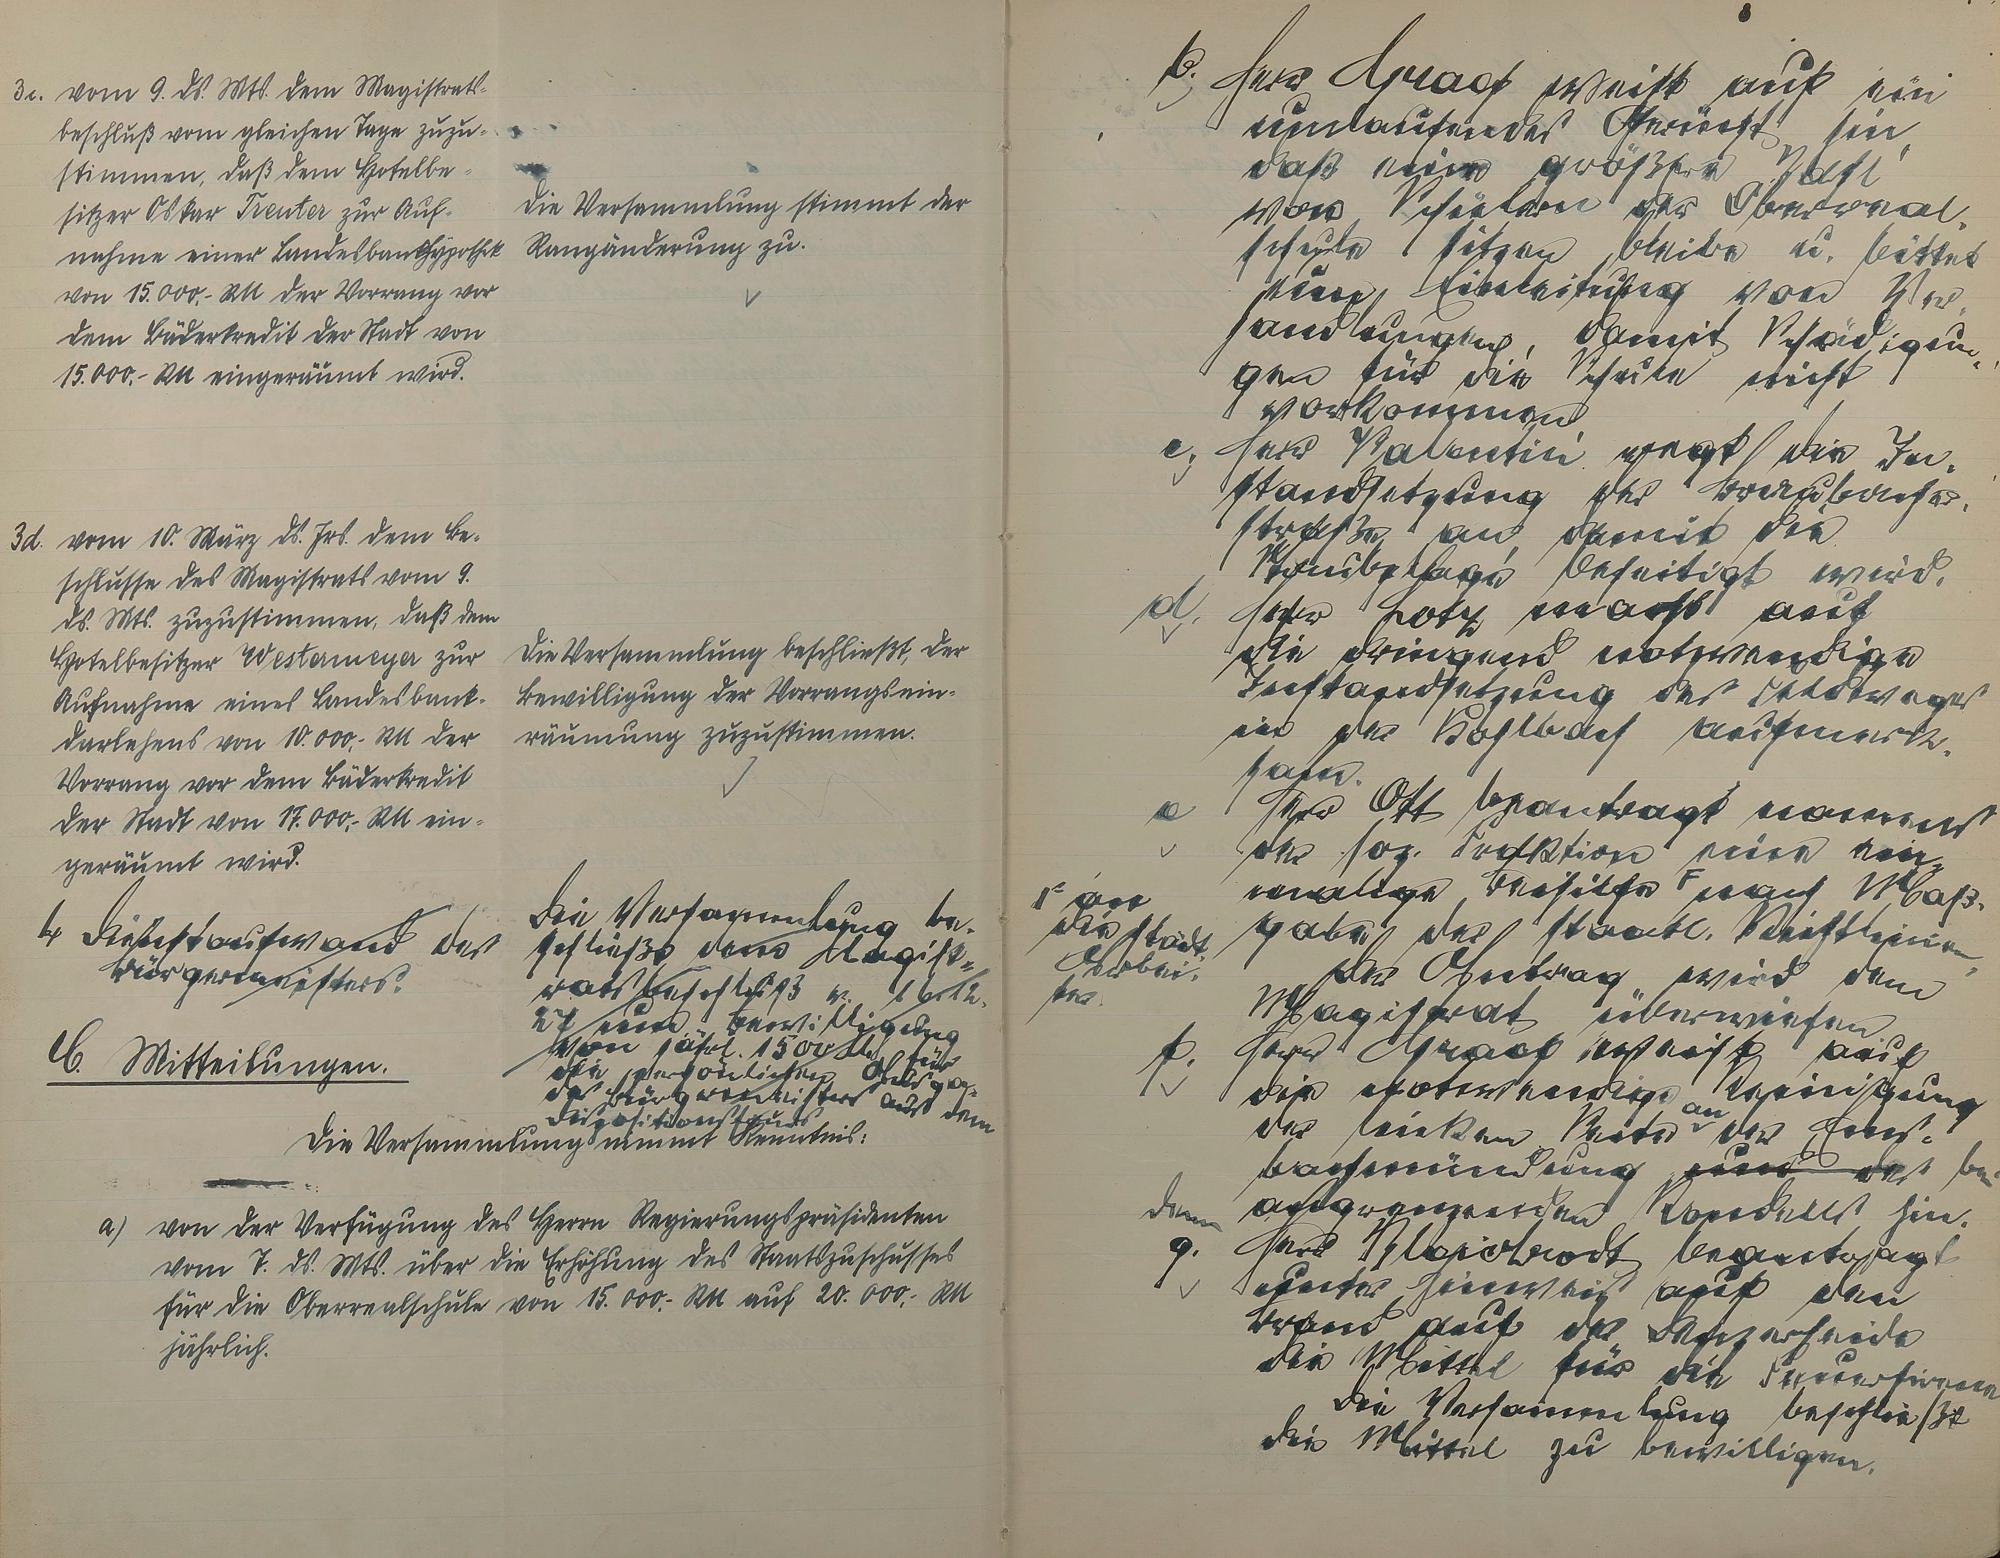 3c. vom 9. ds. Mts. dem Magistrats-
beschluß vom gleichen Tage zuzu-
stimmen, daß dem Hotelbe-
sitzer Oskar Treuter zur Auf-
nahme einer Landesbankhypothek
von 15.000,- RM der Vorrang vor
dem Bäderkredit der Stadt von
15.000,- RM eingeräumt wird.
Die Versammlung stimmt der
Rangänderung zu.
3d. vom 10. März ds. Jrs. dem Be-
schlusse des Magistrats vom 9.
ds. Mts. zuzustimmen, daß dem
Hotelbesitzer Westermeyer zur
Aufnahme eines Landesbank-
darlehens von 10.000,- RM der
Vorrang vor dem Bäderkredit
der Stadt von 17.000,- RM ein-
geräumt wird.
Die Versammlung beschließt, der
Bewilligung der Vorrangsein-
räumung zuzustimmen.
4 Dienstaufwand des
Bürgermeisters.
Die Versammlung be-
schließt dem Magist-
ratsbeschluß v.
27 zum Bewilligung
von jährl. 1500 RM für
die persönlichen
des Bürgermeisters aus dem
Dispositionsfonds
C. Mitteilungen.
Die Versammlung nimmt Kenntnis:
a) von der Verfügung des Herrn Regierungspräsidenten
vom 7. ds. Mts. über die Erhöhung des Staatszuschusses
für die Oberrealschule von 15.000,- RM auf 20.000,- RM
jährlich.
b. Herr Graef weist auf ein
umlaufendes Gerücht hin,
daß eine größere Zahl
von Schülern der Oberreal-
schule sitzen bleibe u. bittet
um Einleitung von Ver-
handlungen, damit Schädigun-
gen für die Schule nicht
vorkommen
c, Herr Valentin regt die In-
standsetzung der Braubacher-
straße an, damit die
Staubplage beseitigt wird.
d. Herr Lotz macht auf
die dringend notwendige
Instandsetzung des Feldweges
in der Kohlbach aufmerk-
sam.
e Herr Ott beantragt namens
der soz. Fraktion eine ein-
malige Beihilfe ꜰ nach Maß-
gabe der staatl. Richtlinien,
ꜰ an
die städt.
Arbei-
ter.
Der Antrag wird dem
Magistrat überwiesen
f. Herr Graef weist auf
die notwendige Reinigung
der linken Seite an der Ems-
bachmündung und des be
angrenzenden Rondells hin.
dem
g. Herr beantragt
unter Hinweis auf den
Brand auf der Denzerheide
die Mittel für die Feuersirene
Die Versammlung beschließt
die Mittel zu bewilligen.